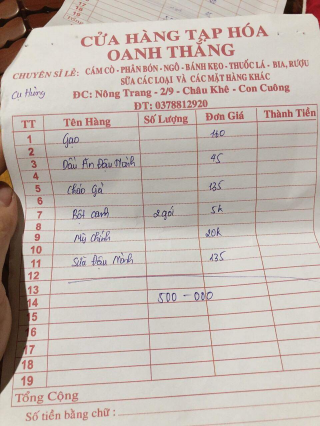 CỬA HÀNG TẠP HÓA
OANH THẮNG
CHUYÊN SỈ LẺ: CÁM CÒ - PHÂN BÓN - NGÔ - BÁNH KẸO - THUỐC LÁ - BIA, RƯỢU
SỮA CÁC LOẠI VÀ CÁC MẶT HÀNG KHÁC
ĐC: Nông Trang - 2/9 - Châu Khê - Con Cuông
ĐT: 0378812920
TT Tên Hàng Số Lượng Đơn Giá Thành Tiền
1 Gạo
2
3 Dầu Ăn 95
4
5 Cháo Gà 135
6
7 Bột canh 2 gói 5k
8
9 Mỳ Chính 20k
10
11 Sữa Đậu Nành 135
12
13
14 500-000
15
16
17
18
19
Tổng Cộng
Số tiền bằng chữ :